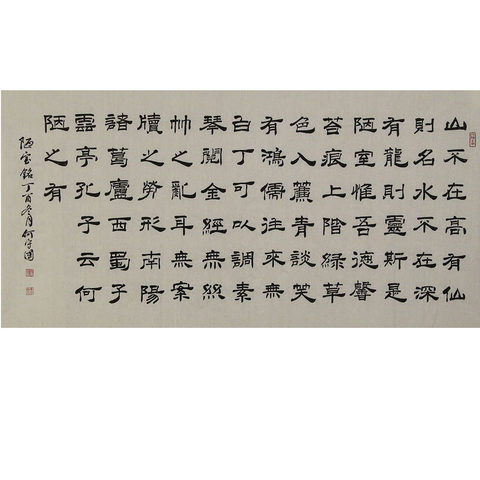 山不在高有仙
則名水不在深
有龍則靈斯是
陋室惟吾德馨
苔痕上階綠草
色入簾青談笑
有鴻儒往來無
白丁可以調素
琴閱金經無絲
竹之亂耳無案
牘之勞形南陽
諸葛廬西蜀子
雲亭孔子云何
陋之有
陋室銘丁酉冬月何